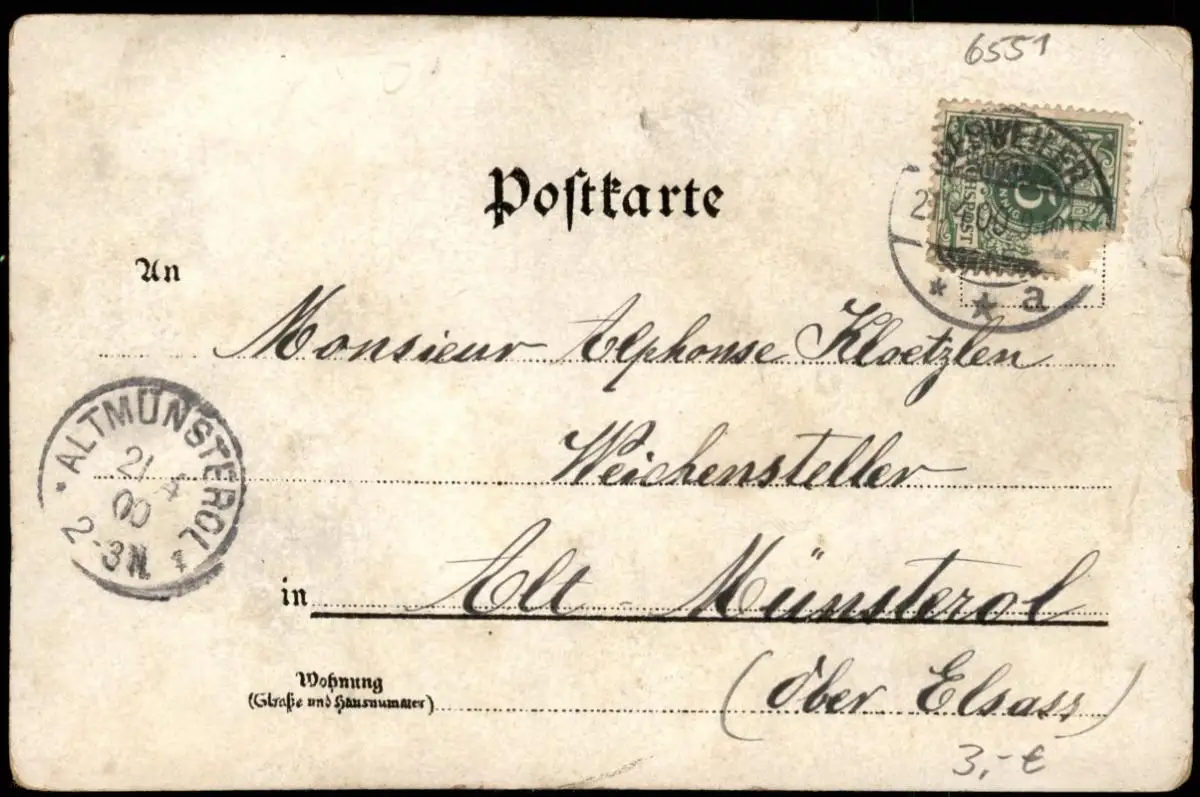 6551
5
REICHSPOST
00
a
Postkarte
An
Monsieur Alphonse Kloetzlen
Weichensteller
ALTMÜNSTEROL
21 4
00
2-3N. 1
in Alt-Münsterol
Wohnung
(Straße und Hausnummer)
(Ober Elsass)
3,- €